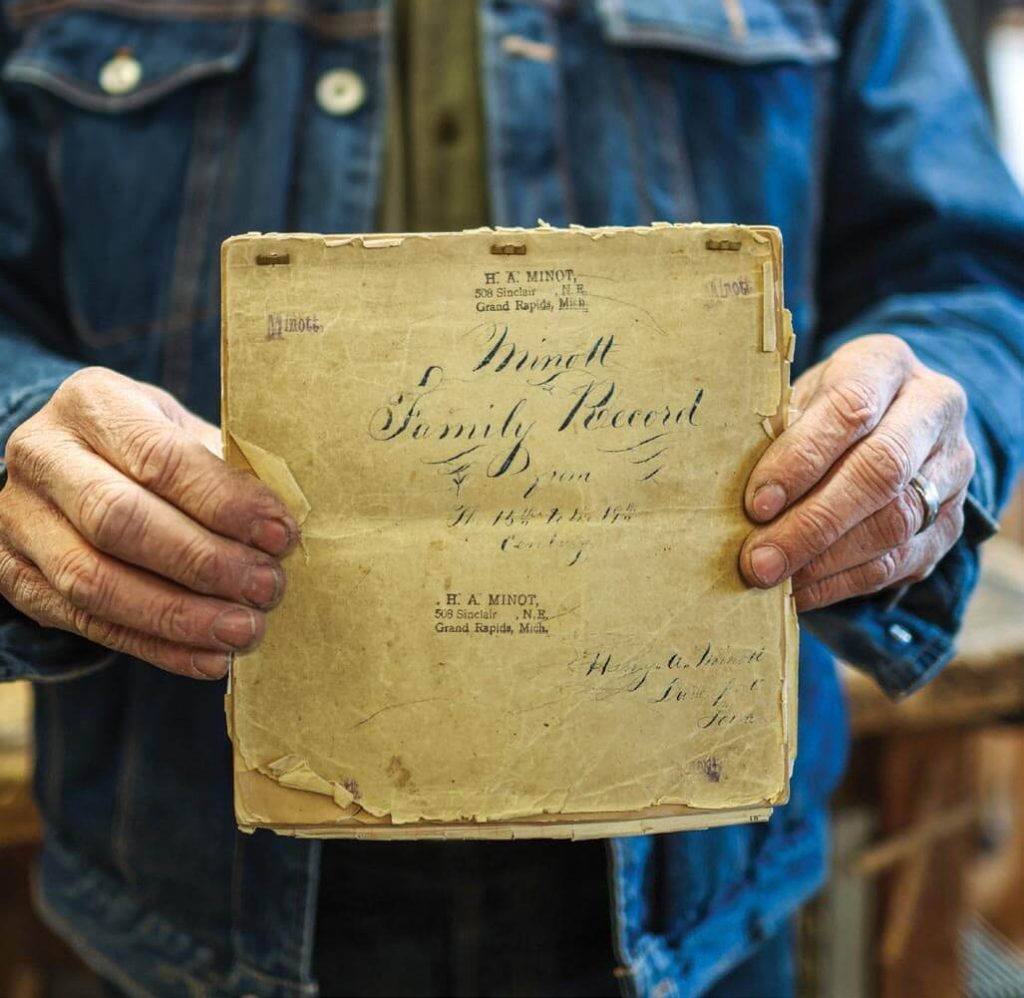 H. A. MINOT,
508 Sinclair , N.E.
Grand Rapids, Mich.
Minott.
Minott
Minott
Family Record
From
The 15th to the 19th
Century
H. A. MINOT,
508 Sinclair , N.E.
Grand Rapids, Mich.
Henry A. Minott